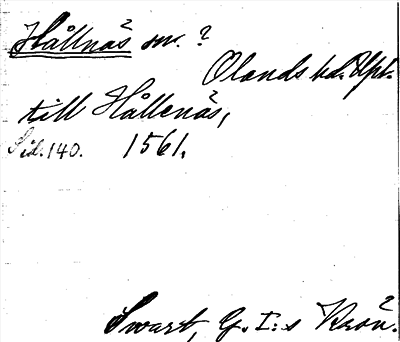 Hållnäs sn. ?
Olands hd. Upl.
till Hållenäs,
Sid. 140. 1561.
Swart, G. I:s Krön.